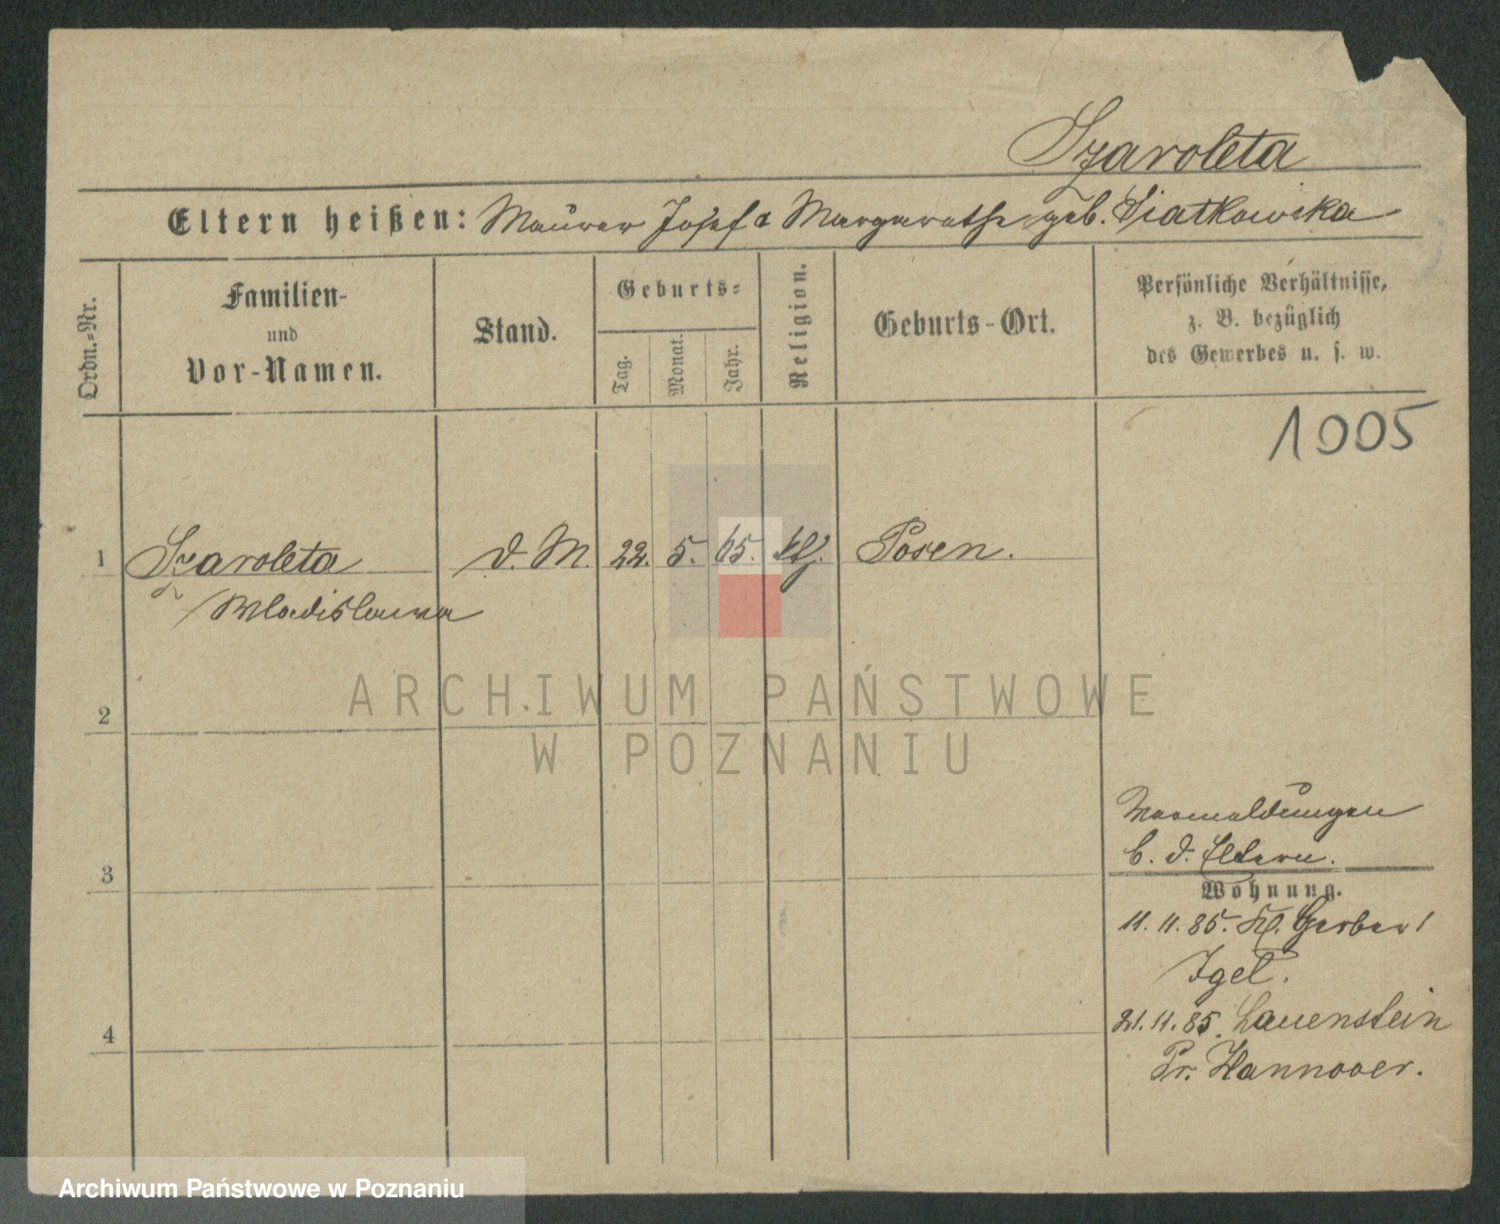 Szaroleta
Eltern heißen: Maurer Josef & Margarethe geb. Siatkowska
Ordn.-Nr.
Familien-
und
Vor-Namen.
Stand.
Geburts-
Tag.
Monat.
Jahr.
Religion.
Geburts-Ort.
Persönliche Verhältnisse,
z. B. bezüglich
des Gewerbes u. s. w.
1005
1 Szaroleta d. M. 22. 5. 65. kth. Posen.
Wladislawa
2
ARCHIWUM PAŃSTWOWE
W POZNANIU
3
4
b. d. Eltern.
Wohnung.
11. 11. 85. Kl. Gerber 1
Igel.
21. 11. 85. Lauenstein
Pr. Hannover.
Archiwum Państwowe w Poznaniu